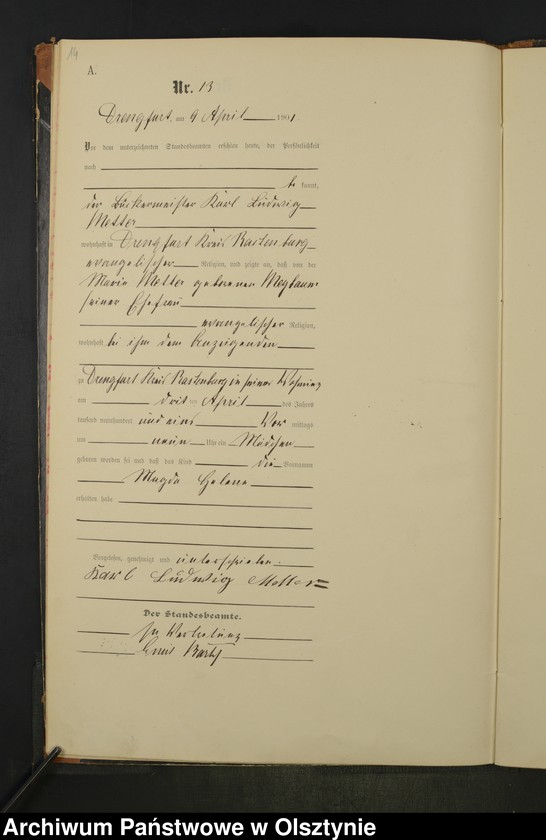 14
A.
Nr. 13
Drengfurt, am 9 April 1901
Vor dem unterzeichneten Standesbeamten erschien heute, der Persönlichkeit
nach
be kannt,
der Bäckermeister Karl Ludwig
Moller
wohnhaft in Drengfurt Kreis Rastenburg
evangelischer Religion, und zeigte an, daß von der
Marie Moller geborenen
seiner Ehefrau
evangelischer Religion,
wohnhaft bei ihm dem Anzeigenden
zu Drengfurt Kreis Rastenburg in seiner Wohnung
am drit ten April des Jahres
tausend neunhundert und eins Vor mittags
um neun Uhr ein Mädchen
geboren worden sei und daß das Kind die Vornamen
Magda Helene
erhalten habe
Vorgelesen, genehmigt und unterschrieben
Karl Ludwig Moller
Der Standesbeamte.
In Vertretung